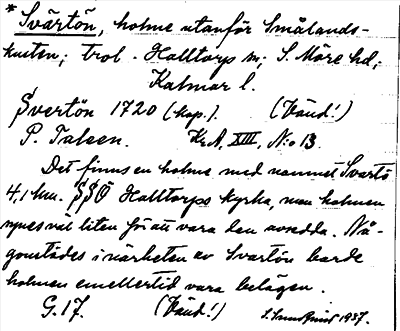 * Svärtön, holme utanför Smålands-
kusten; trol. Halltorps sn; S. Möre hd;
Kalmar l.
Svertön 1720 (kop.). (Vänd!)
P. Talcen. KrA, XIII, N:o 13.
Det finns en holme med namnet Svartö
4,1 km. SSÖ Halltorps kyrka, men holmen
synes väl liten för att vara den avsedda. Nå-
gonstädes i närheten av Svartön borde
holmen emellertid vara belägen.
G. 17. (Vänd!) 1937.